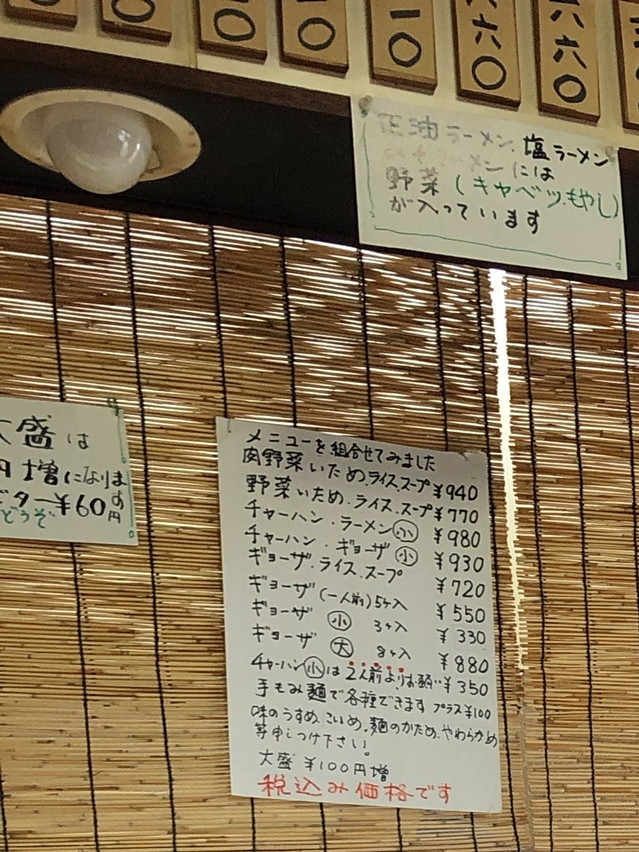 〇
〇
一〇
六〇
六六〇
正油ラーメン、塩ラーメン
ラーメンには
野菜(キャベツ、もやし)
が入っています
大盛は
円増になります
ター¥60円
どうぞ
メニューを組合せてみました
肉野菜いため、ライス、スープ ¥940
野菜いため、ライス、スープ ¥770
チャーハン、ラーメン小 ¥980
チャーハン、ギョーザ小 ¥930
ギョーザ、ライス、スープ ¥720
ギョーザ(一人前)5ヶ入 ¥550
ギョーザ 小 3ヶ入 ¥330
ギョーザ 大 8ヶ入 ¥880
チャーハン小は2人前よりお願い ¥350
手もみ麺で各種できます プラス¥100
味のうすめ、こいめ、麺のかため、やわらかめ
等申しつけ下さい!
大盛 ¥100円増
税込み価格です